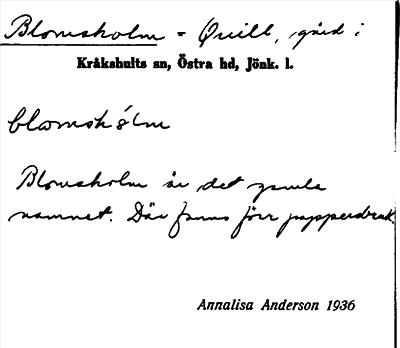 Blomsholm = Qvill, gård i
Kråkshults sn, Östra hd, Jönk. l.
blomshólm
Blomsholm är det gamla
namnet. Där fanns förr pappersbruk.
Annalisa Anderson 1936